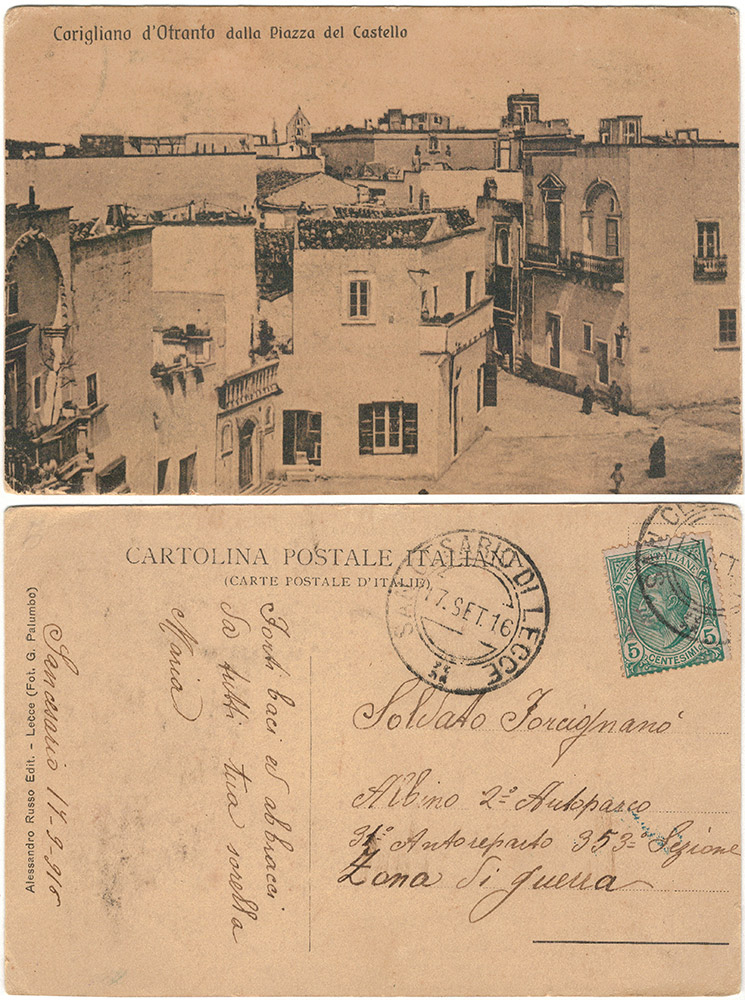 Corigliano d'Otranto dalla Piazza del Castello
CARTOLINA POSTALE ITALIANA
(CARTE POSTALE D'ITALIE)
SAN CESARIO DI LECCE
17.SET.16
POSTE ITALIANE
5 CENTESIMI 5
Alessandro Russo Edit. - Lecce (Fot. G. Palumbo)
Sancesario 17-9-916
Forti baci ed abbracci
Da tutti tua sorella
Maria
Soldato Forcignanó
Albino 2º Autoparco
31º Autoreparto 353ª Sezione
Zona di guerra